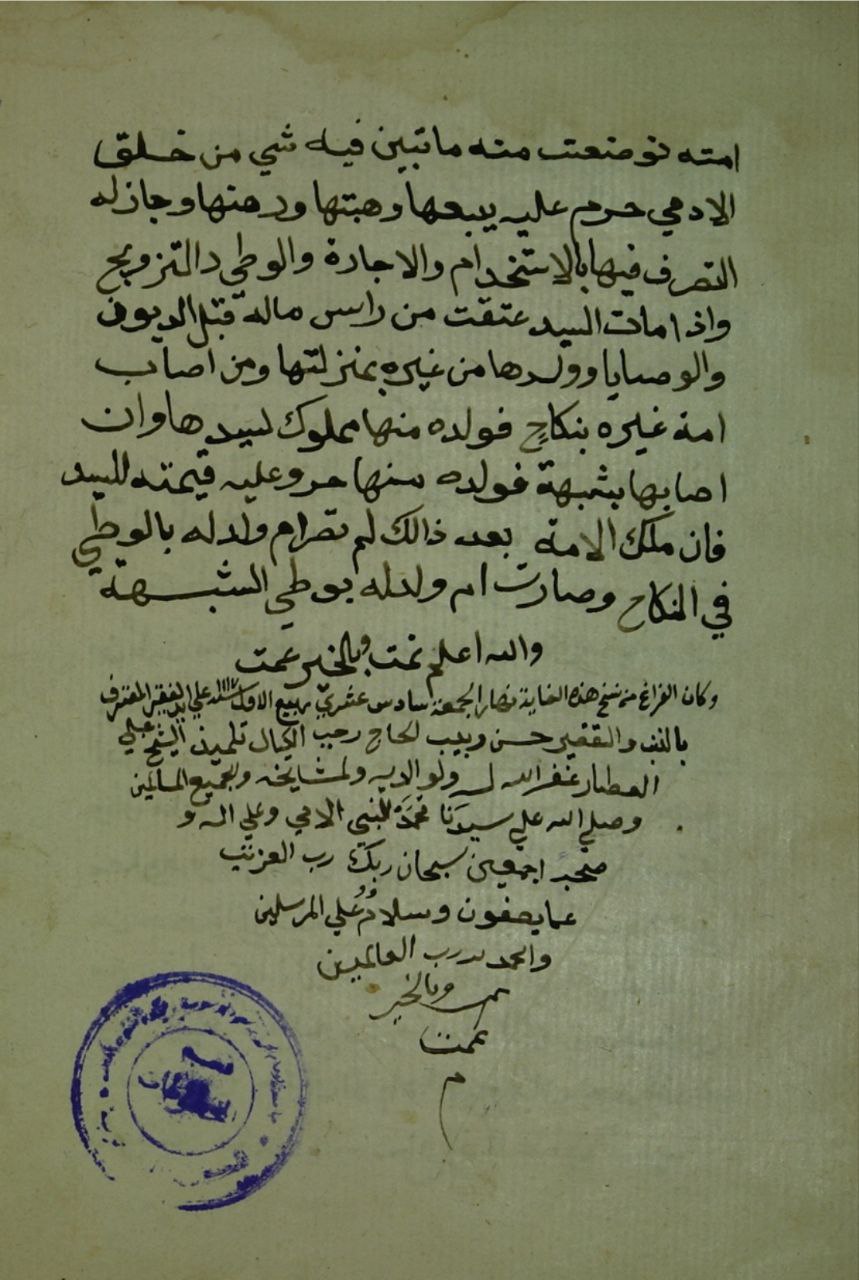 امته فوضعت منه ما تبين فيه شي من خلق
الادمي حرم عليه بيعها وهبتها ورهنها وجاز له
التصرف فيها بالاستخدام والاجارة والوطي والتزويج
واذا مات السيد عتقت من راس ماله قبل الديون
والوصايا وولدها من غيره بمنزلتها ومن اصاب
امة غيره بنكاح فولده منها مملوك لسيدها وان
اصابها بشبهة فولده منها حر وعليه قيمته للسيد
فان ملك الامة بعد ذالك لم تصر ام ولد له بالوطي
في النكاح وصارت ام ولد له بوطي الشبهة
والله اعلم تمت وبالخير عمت
وكان الفراغ من نسخ هذه الغاية نهار الجمعة سادس عشري ربيع الاول علي يد الفقير المعترف
بالذنب والتقصير حسن وبيب الحاج رجب الكيال تلميذ الشيخ علي
العطار غفر الله له ولوالديه ولمشايخه ولجميع المسلمين
وصلي الله علي سيدنا محمد النبي الامي وعلي اله و
صحبه اجمعين سبحان ربك رب العزت
عما يصفون وسلام علي المرسلين
والحمد لله رب العالمين
تمت وبالخير
عمت
م